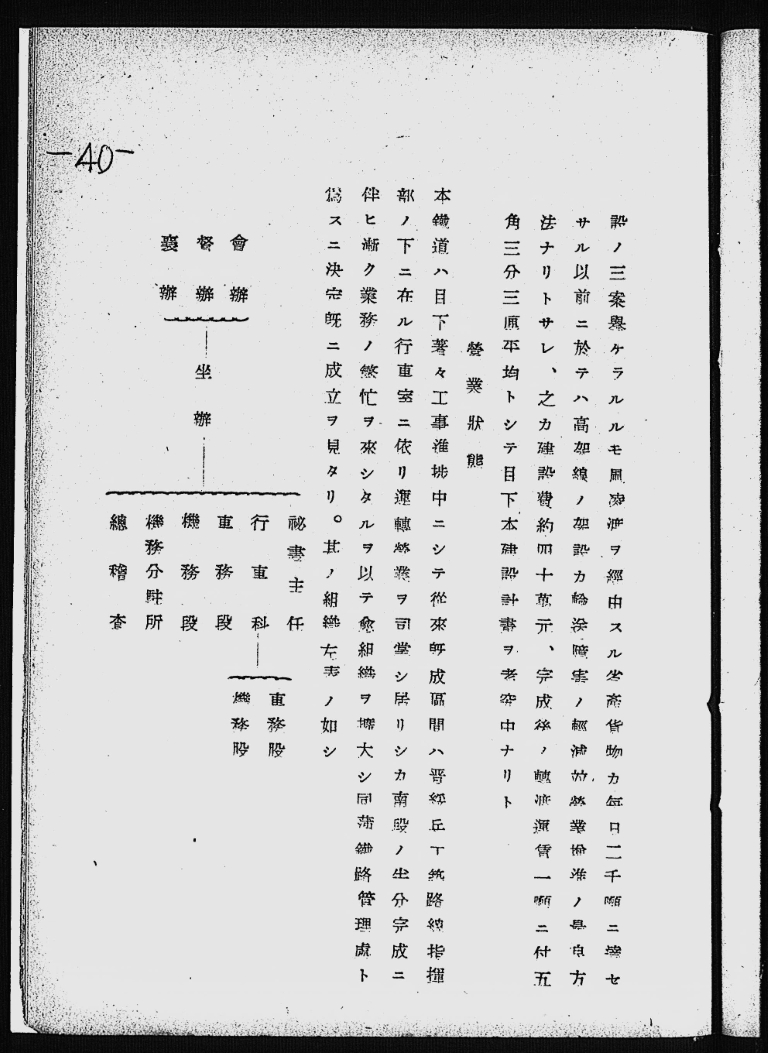 -40-
設ノ三案擧ケラルルモ風凌渡ヲ經由スル省產貨物カ每日二千噸ニ達セ
サル以前ニ於テハ高架線ノ架設カ輪渡障害ノ輕減並營業推進ノ最良方
法ナリトサレ、之カ建設費約四十萬元、完成後ノ轉渡運賃一噸ニ付五
角三分三厘平均トシテ目下本建設計畫ヲ考究中ナリト
營業狀態
本鐵道ハ目下著々工事進捗中ニシテ從來既成區間ハ晋綏兵工築路總指揮
部ノ下ニ在ル行車室ニ依リ運轉營業ヲ司掌シ居リシカ南段ノ坐分完成ニ
伴ヒ漸ク業務ノ繁忙ヲ來シタルヲ以テ愈組織ヲ擴大シ同蒲鐵路管理處ト
爲スニ決定既ニ成立ヲ見タリ。其ノ組織左表ノ如シ
會辦
督辦
襄辦
坐辦
祕書主任
行車科
車務股
機務股
車務段
機務段
機務分駐所
總稽查